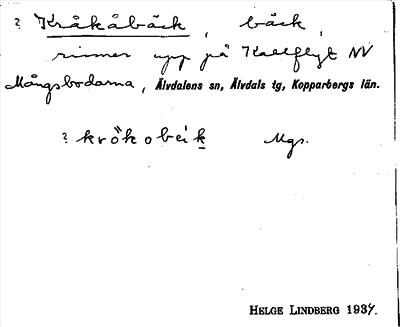 ? Kråkåbäck, bäck,
rinner upp på Kallflyt NV
Mångsbodarna, Älvdalens sn, Älvdals tg, Kopparbergs län.
? krö̀kobeìk Mgs.
HELGE LINDBERG 1937.